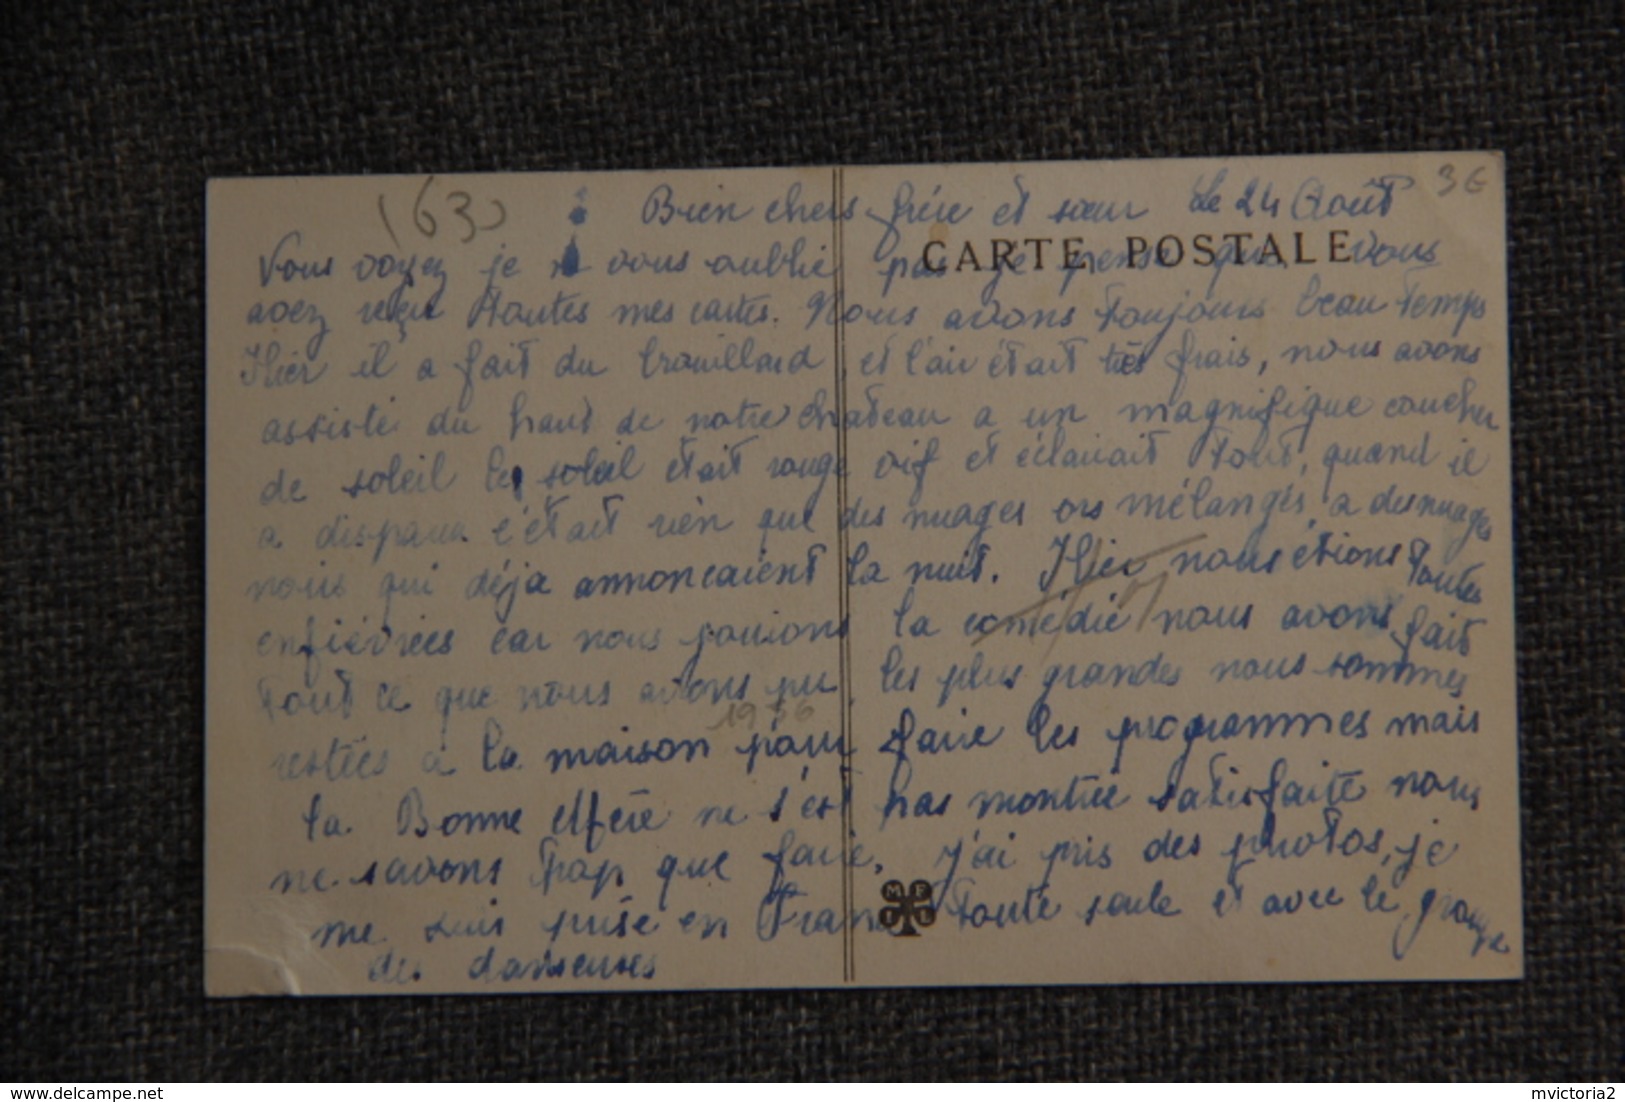 (63)
3€
Bien chers frère et sœur Le 24 Août
CARTE POSTALE
Vous voyez je vous oublie pas je pense que vous
avez reçu toutes mes cartes. Nous avons toujours beau temps
Hier il a fait du brouillard et l'air était très frais, nous avons
assisté du haut de notre chateau a un magnifique coucher
de soleil le soleil était rouge vif et éclairait tout, quand il
a disparu c'était rien que des nuages ors mélangés a des nuages
noirs qui déja annoncaient la nuit. Hier nous étions toutes
enfiévrées car nous jouions la comédie nous avons fait
tout ce que nous avons pu, les plus grandes nous sommes
1936
restées a la maison pour faire les programmes mais
la Bonne Mère ne s'est pas montrée satisfaite nous
ne savons trop que faire. J'ai pris des photos, je
me suis prise en toute seule et avec le groupe
des danseuses
M F
mvictoria2
delcampe.net